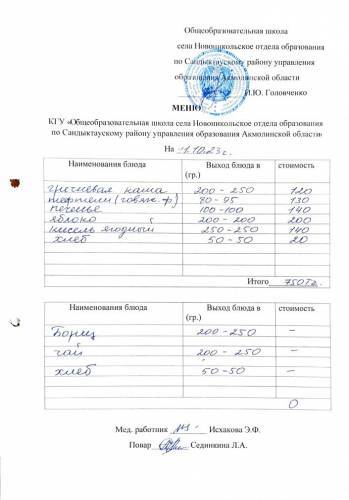 Общеобразовательная школа
села Новоникольское отдела образования
по Сандыктаускому району управления
образования Акмолинской области
И.Ю. Головченко
МЕНЮ
КГУ «Общеобразовательная школа села Новоникольское отдела образования
по Сандыктаускому району управления образования Акмолинской области»
На 11.10.23г.
Наименования блюда Выход блюда в (гр.) стоимость
гречневая каша 200 - 250 120
тефтели (говяж.ф) 90 - 95 130
печенье 100 - 100 140
яблоко 200 - 200 200
кисель ягодный 250 - 250 140
хлеб 50 - 50 20
Итого 750тг.
Наименования блюда Выход блюда в (гр.) стоимость
Борщ 200 - 250 –
чай 200 - 250 –
хлеб 50 - 50 –
0
Мед. работник Исхакова Э.Ф.
Повар Сединкина Л.А.